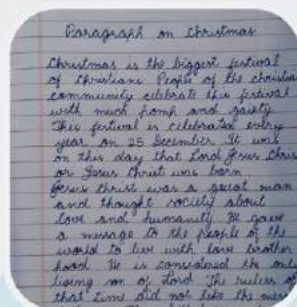 Paragraph on Christmas
Christmas is the biggest festival
of Christians People of the christian
community celebrate this festival
with much pomp and gaiety
This festival is celebrated every
year on 25 December. It was
on this day that Lord Jesus Chris
or Jesus Christ was born
Jesus Christ was a great man
and thought society about
love and humanity He gave
a message to the people of the
world to live with love brother
hood He is considered the only
living son of Lord The rulers of
that time did not like the mess